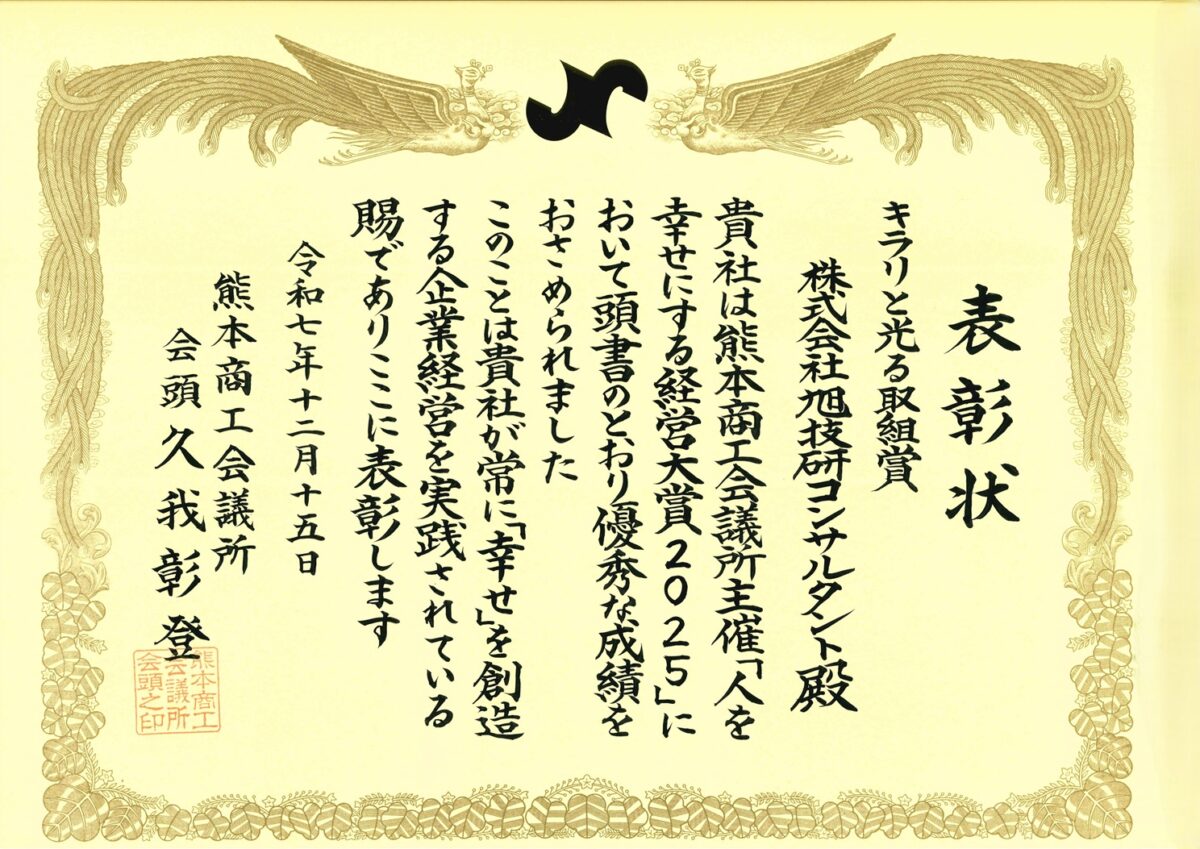 表彰状
キラリと光る取組賞
株式会社旭技研コンサルタント殿
貴社は熊本商工会議所主催「人を
幸せにする経営大賞2025」に
おいて頭書のとおり優秀な成績を
おさめられました
このことは貴社が常に「幸せ」を創造
する企業経営を実践されている
賜でありここに表彰します
令和七年十二月十五日
熊本商工会議所
会頭久我彰登
熊本商工
会議所
会頭之印